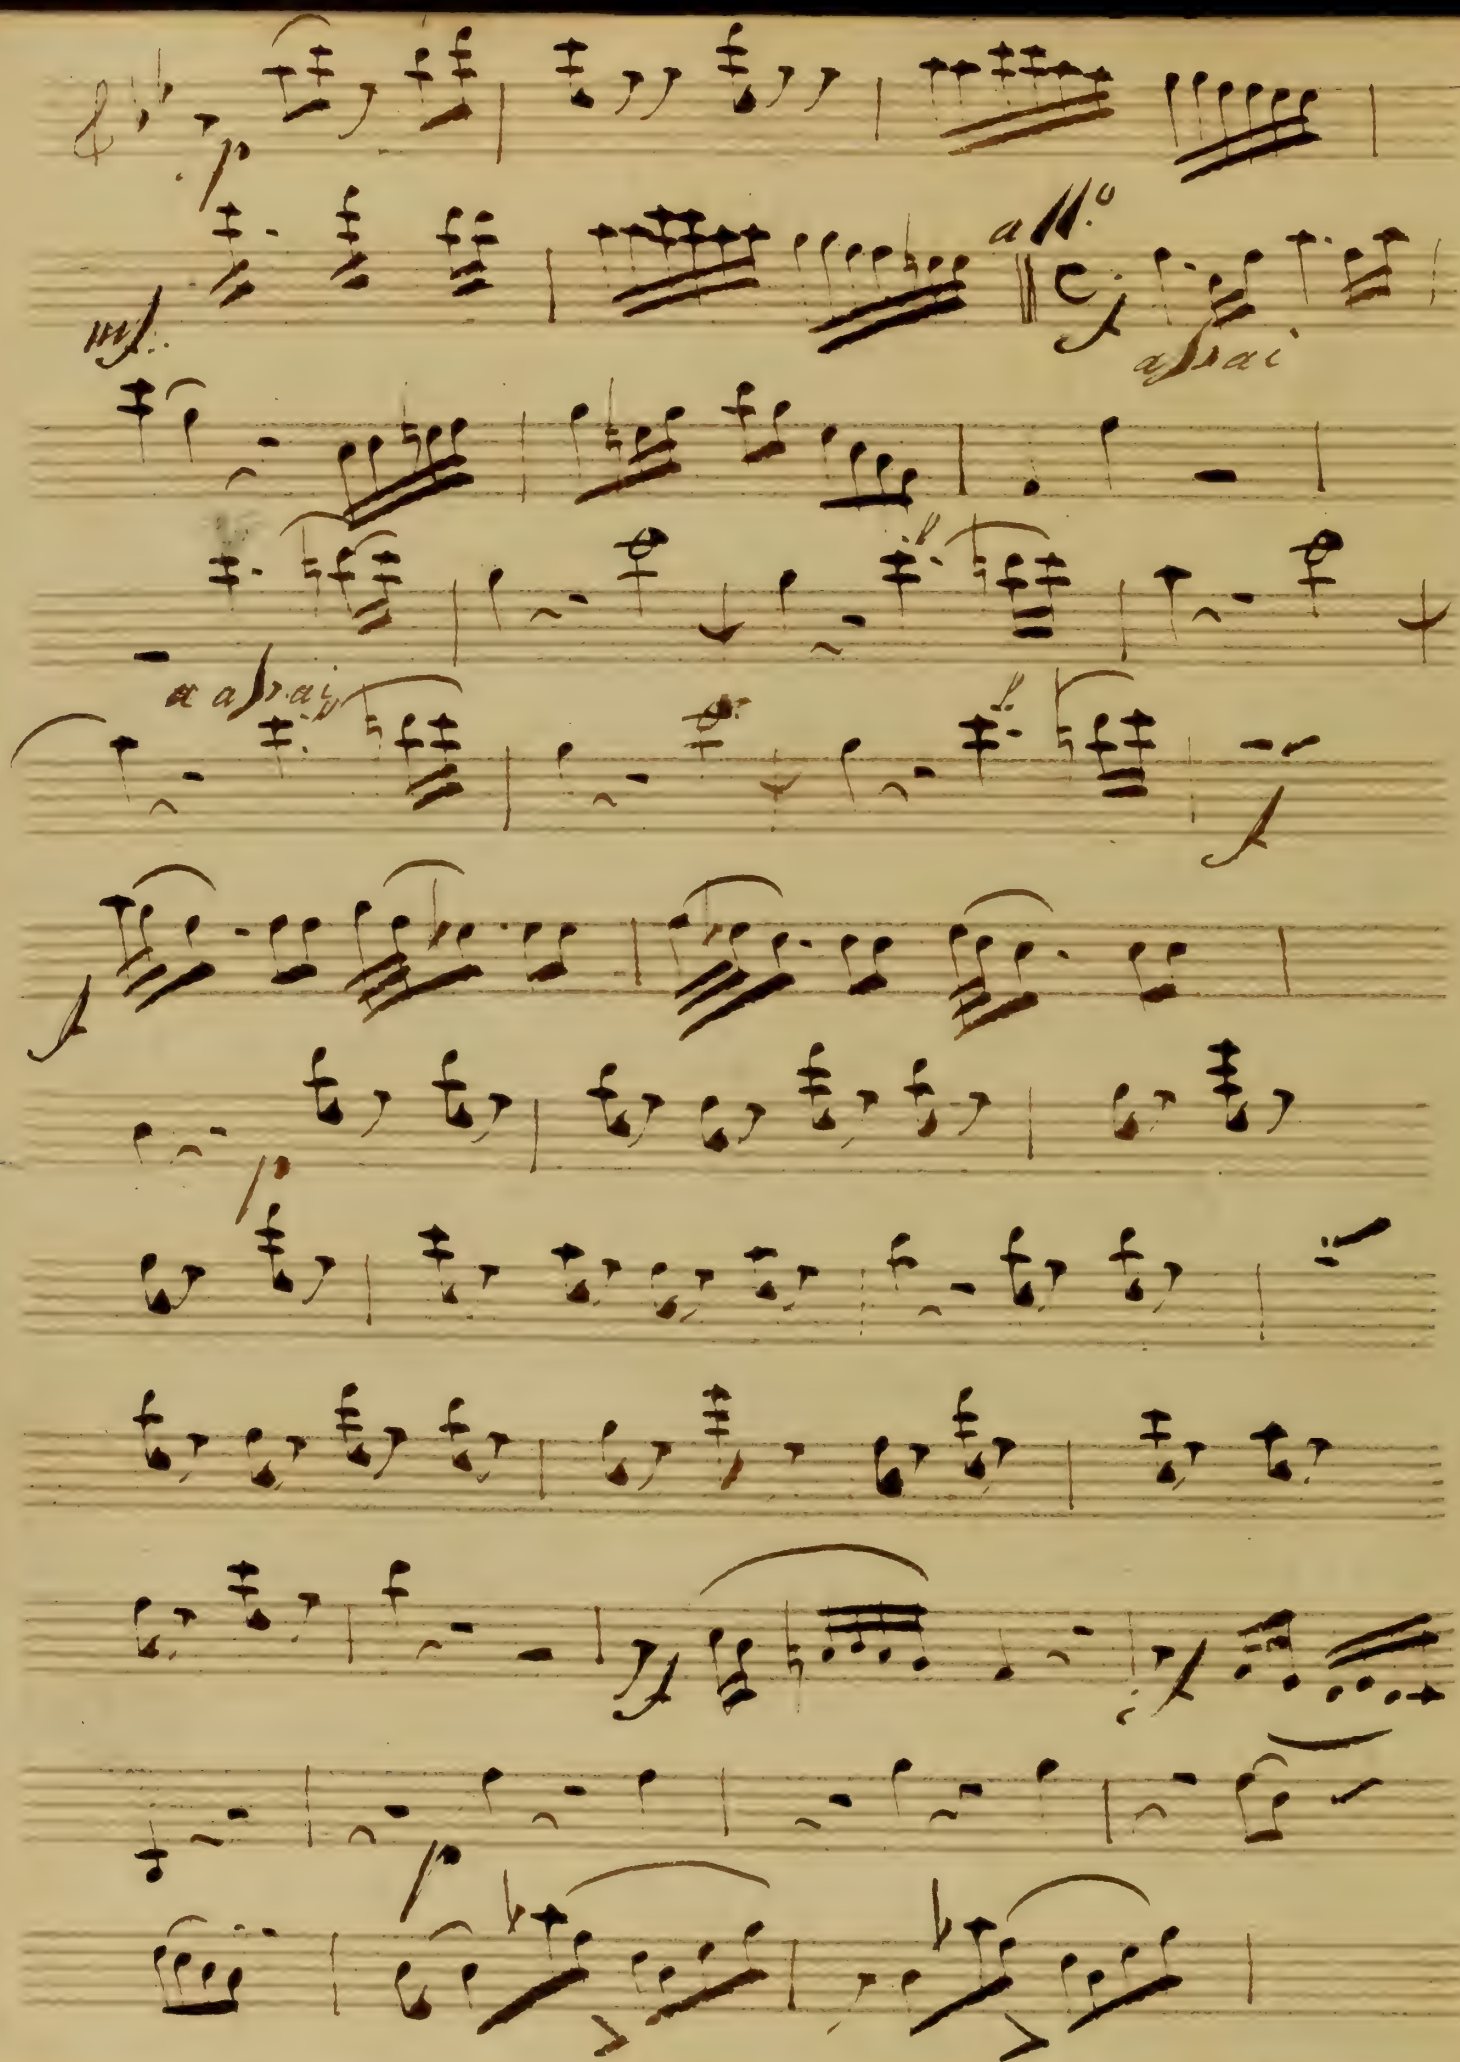 p
mf. all.o
f assai
a assai
f
f
p
f f
p